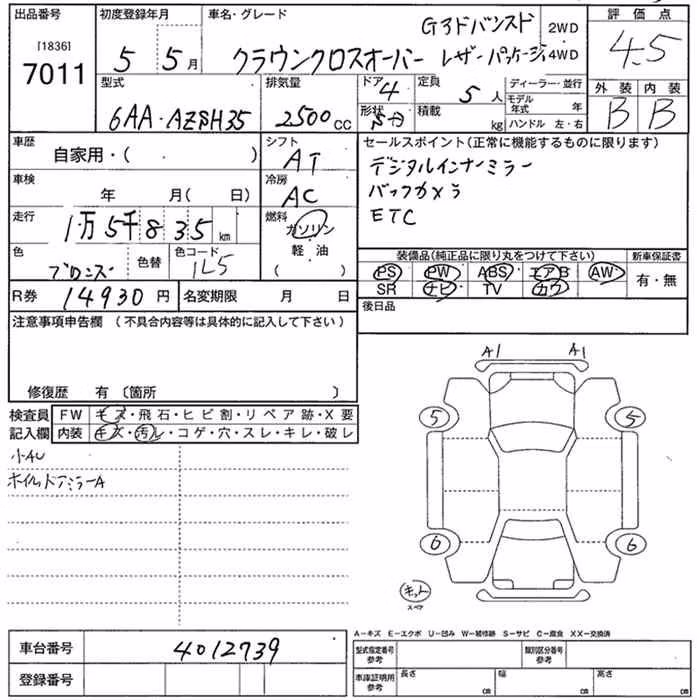 出品番号 初度登録年月 車名・グレード 評価点
[1836]
7011
5 5月
Gアドバンスド 2WD
クラウンクロスオーバー レザーパッケージ 4WD
4.5
型式 排気量 ドア 4 定員 5人 ディーラー・並行
外装 内装
B B
6AA・AZSH35 2500cc
形状 積載 kg
モデル年式 年
ハンドル 左・右
車歴 自家用・( )
シフト AT
セールスポイント(正常に機能するものに限ります)
デジタルインナーミラー
バックカメラ
ETC
車検 年 月( 日)
冷房 AC
走行 1万5千835km
燃料 ガソリン
軽油
( )
色 ブロンズ 色替 色コード 1L5
装備品(純正品に限り丸をつけて下さい) 新車保証書
PS PW ABS エアB AW 有・無
SR ナビ TV カワ
R券 14930円 名変期限 月 日
後日品
注意事項申告欄(不具合内容等は具体的に記入して下さい)
修復歴 有〔箇所 〕
検査員記入欄
FW キズ・飛石・ヒビ割・リペア跡・X要
内装 キズ・汚レ・コゲ・穴・スレ・キレ・破レ
小AU
ホイルドアミラーA
A1 A1
5 5
6 6
キット
スペア
A-キズ E-エクボ U-凹み W-補修跡 S-サビ C-腐食 XX-交換済
車台番号 4012739
登録番号
型式指定番号 参考 類別区分番号 参考
車庫証明用 参考 長さ cm 幅 cm 高さ cm